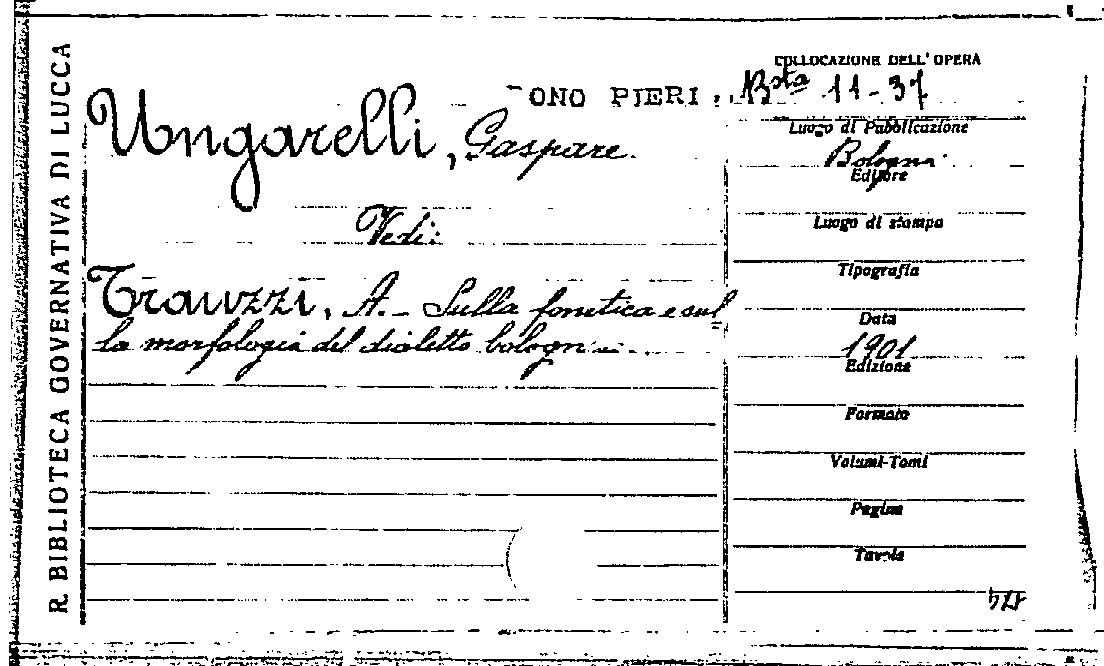 R. BIBLIOTECA GOVERNATIVA DI LUCCA
COLLOCAZIONE DELL'OPERA
ONO PIERI. Bsta 11-37
Ungarelli, Gaspare.
Vedi:
Trauzzi, A. - Sulla fonetica e sul=
la morfologia del dialetto
Luogo di Pubblicazione
Bologna
Editore
Luogo di stampa
Tipografia
Data
1901
Edizione
Formato
Volumi-Tomi
Pagine
Tavole